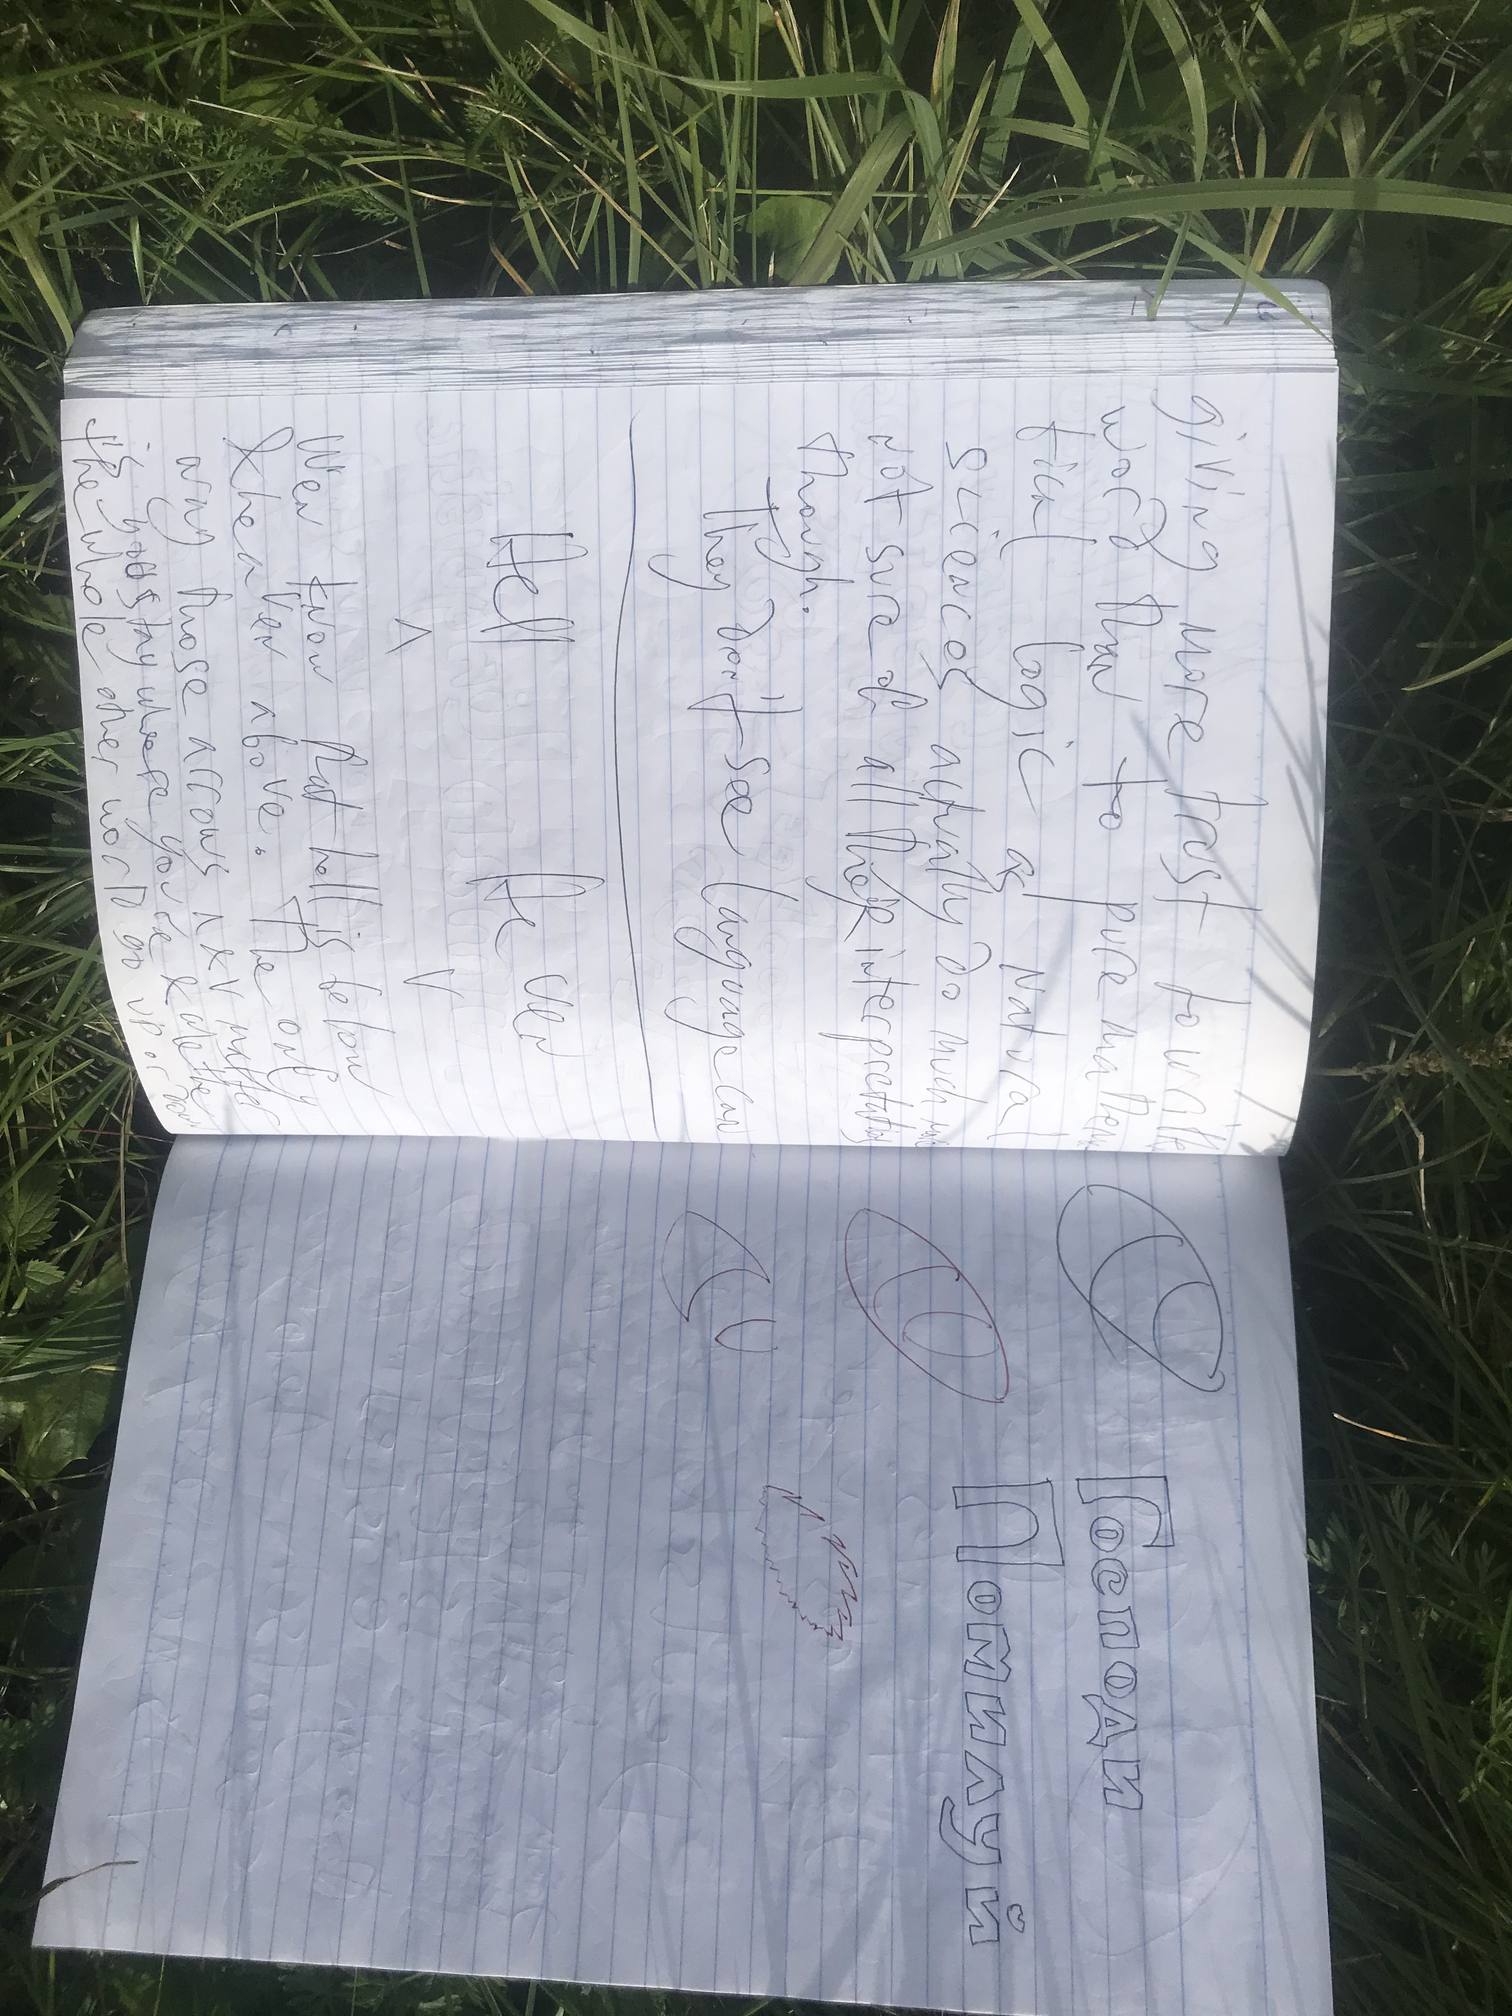 giving more trust to
word than to pure mathema
tical logic as natural
sciences actually do much
not sure of all their interpretation
though.
They don't see language can
Hell Heven
Wen know that hell is below
& heaven above. The only
way those arrows matter
is stay where you're &
the whole other world go up or down
Господи
Помилуй